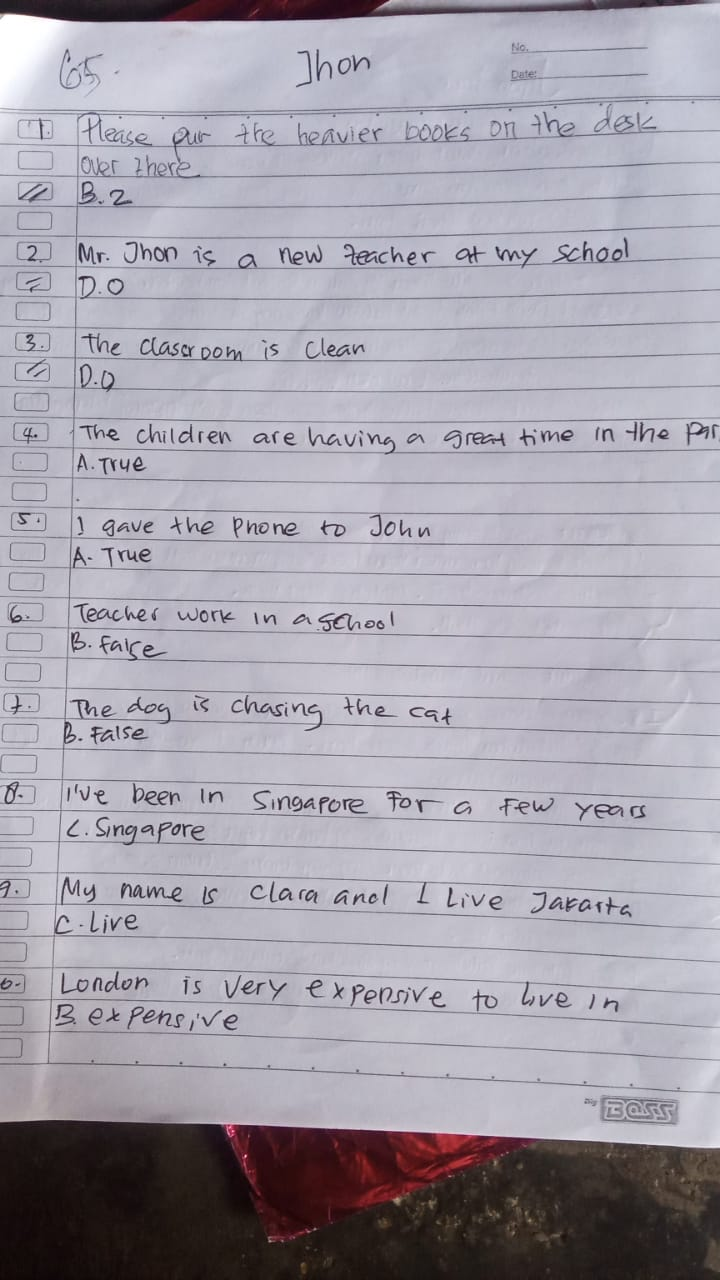 65.
Jhon
No.
Date:
1. Please pur the heavier books on the desk
over there
B. 2
2. Mr. Jhon is a new teacher at my school
D. 0
3. The classroom is clean
D. 0
4. The children are having a great time in the par
A. True
5. I gave the phone to John
A. True
6. Teacher work in a school
B. false
7. The dog is chasing the cat
B. False
8. I've been in Singapore for a few years
C. Singapore
9. My name is Clara and I Live Jakarta
C. Live
London is very expensive to live in
B. expensive
Big BOSS